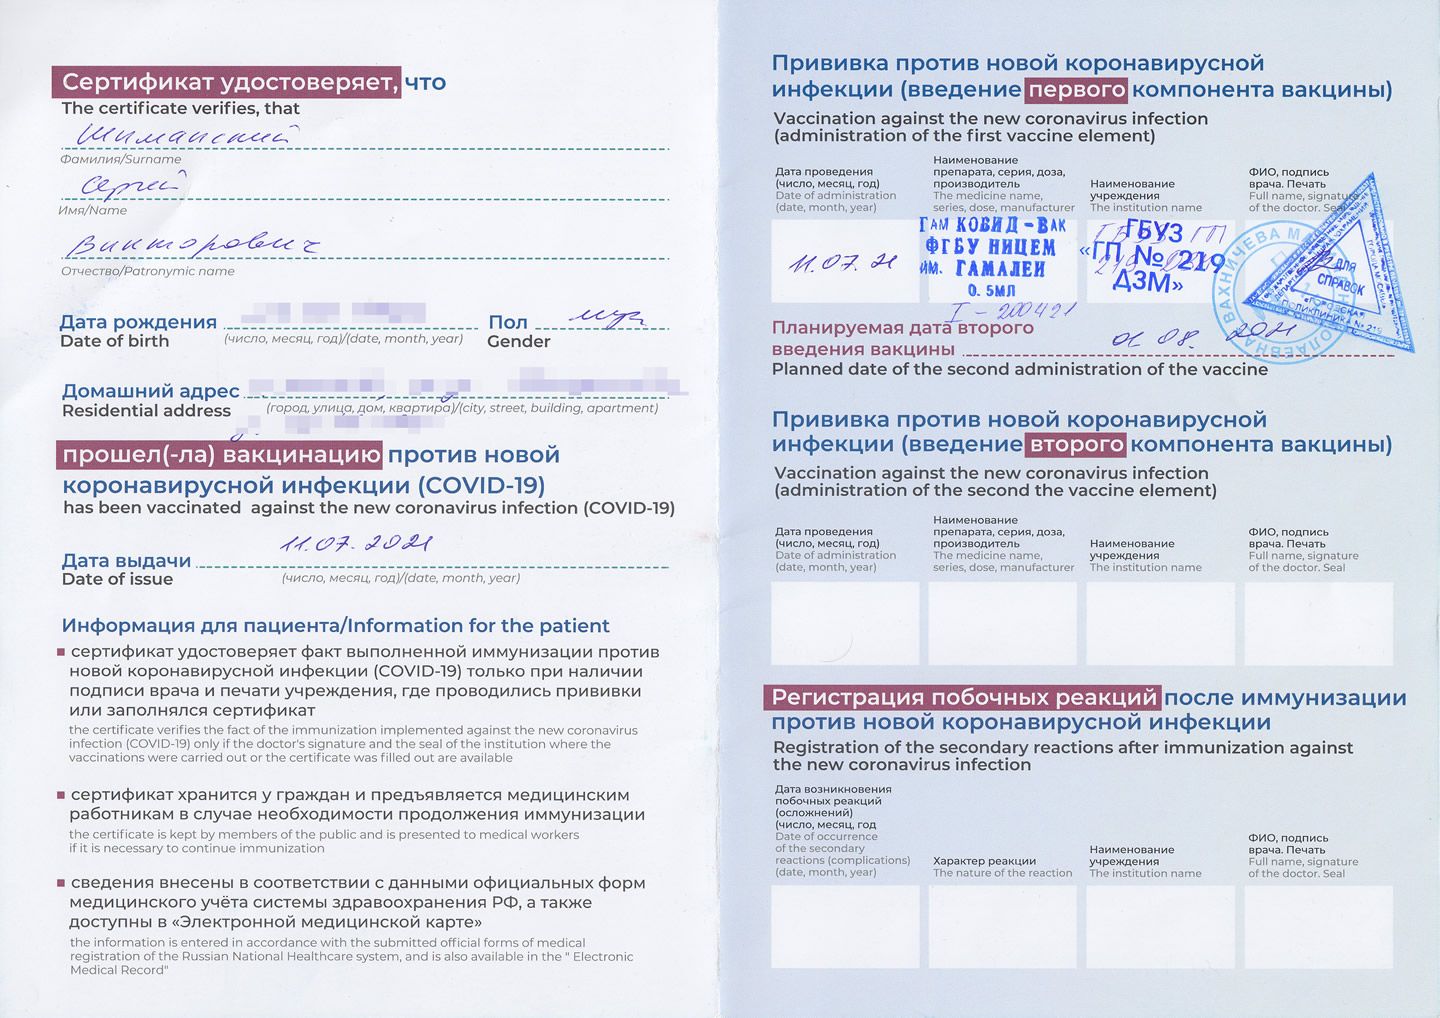 Сертификат удостоверяет, что
The certificate verifies, that
Шиманский
Фамилия/Surname
Сергей
Имя/Name
Викторович
Отчество/Patronymic name
Дата рождения
Date of birth
(число, месяц, год)/(date, month, year)
Пол
Gender
муж
Домашний адрес
Residential address
(город, улица, дом, квартира)/(city, street, building, apartment)
прошел(-ла) вакцинацию против новой
коронавирусной инфекции (COVID-19)
has been vaccinated against the new coronavirus infection (COVID-19)
11.07.2021
Дата выдачи
Date of issue
(число, месяц, год)/(date, month, year)
Информация для пациента/Information for the patient
сертификат удостоверяет факт выполненной иммунизации против
новой коронавирусной инфекции (COVID-19) только при наличии
подписи врача и печати учреждения, где проводились прививки
или заполнялся сертификат
the certificate verifies the fact of the immunization implemented against the new coronavirus
infection (COVID-19) only if the doctor's signature and the seal of the institution where the
vaccinations were carried out or the certificate was filled out are available
сертификат хранится у граждан и предъявляется медицинским
работникам в случае необходимости продолжения иммунизации
the certificate is kept by members of the public and is presented to medical workers
if it is necessary to continue immunization
сведения внесены в соответствии с данными официальных форм
медицинского учёта системы здравоохранения РФ, а также
доступны в «Электронной медицинской карте»
the information is entered in accordance with the submitted official forms of medical
registration of the Russian National Healthcare system, and is also available in the " Electronic
Medical Record"
Прививка против новой коронавирусной
инфекции (введение первого компонента вакцины)
Vaccination against the new coronavirus infection
(administration of the first vaccine element)
Дата проведения
(число, месяц, год)
Date of administration
(date, month, year)
Наименование
препарата, серия, доза,
производитель
The medicine name,
series, dose, manufacturer
Наименование
учреждения
The institution name
ФИО, подпись
врача. Печать
Full name, signature
of the doctor. Seal
11.07.21
ГАМ КОВИД-ВАК
ФГБУ НИЦЕМ
ИМ. ГАМАЛЕИ
0.5МЛ
I - 200421
ГБУЗ
«ГП № 219
ДЗМ»
ВАХНИЧЕВА
ДЛЯ
СПРАВОК
«ГОРОДСКАЯ
ПОЛИКЛИНИКА № 219
Планируемая дата второго
введения вакцины
01.08. 2021
Planned date of the second administration of the vaccine
Прививка против новой коронавирусной
инфекции (введение второго компонента вакцины)
Vaccination against the new coronavirus infection
(administration of the second the vaccine element)
Дата проведения
(число, месяц, год)
Date of administration
(date, month, year)
Наименование
препарата, серия, доза,
производитель
The medicine name,
series, dose, manufacturer
Наименование
учреждения
The institution name
ФИО, подпись
врача. Печать
Full name, signature
of the doctor. Seal
Регистрация побочных реакций после иммунизации
против новой коронавирусной инфекции
Registration of the secondary reactions after immunization against
the new coronavirus infection
Дата возникновения
побочных реакций
(осложнений)
(число, месяц, год
Date of occurrence
of the secondary
reactions (complications)
(date, month, year)
Характер реакции
The nature of the reaction
Наименование
учреждения
The institution name
ФИО, подпись
врача. Печать
Full name, signature
of the doctor. Seal